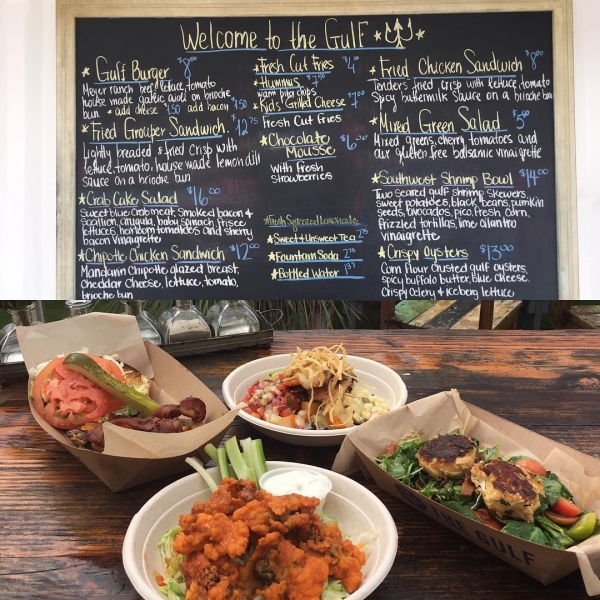 Welcome to the Gulf
Gulf Burger $8.00
Meyer ranch beef, lettuce, tomato
house made garlic aioli on brioche
bun + add cheese $.50 add bacon $1.50
Fried Grouper Sandwich $12.75
Lightly breaded & fried crisp with
lettuce, tomato, house made lemon dill
sauce on a brioche bun
Crab Cake Salad $16.00
Sweet blue crab meat, smoked bacon &
scallion, arugula, baby spinach, frisee
lettuces, heirloom tomatoes and sherry
bacon vinaigrette
Chipotle Chicken Sandwich $12.00
Mandarin Chipotle glazed breast,
cheddar cheese, lettuce, tomato,
brioche bun
Fresh Cut Fries $4.00
Hummus
warm pita chips
Kid's Grilled Cheese $7.00
Fresh Cut Fries
Chocolate Mousse $6.00
with fresh
strawberries
Fresh Squeezed Lemonade
Sweet & Unsweet Tea 2.75
Fountain Soda 2.75
Bottled Water
Fried Chicken Sandwich $8.00
Tenders fried crisp with lettuce, tomato
spicy buttermilk sauce on a brioche bun
Mixed Green Salad
Mixed greens, cherry tomatoes and
our gluten free balsamic vinaigrette
Southwest Shrimp Bowl $14.00
Two seared gulf shrimp skewers,
sweet potatoes, black beans, pumpkin
seeds, avocados, pico, fresh corn,
frizzled tortillas, lime cilantro
vinaigrette
Crispy Oysters $13.00
Corn flour crusted gulf oysters,
spicy buffalo butter, blue cheese,
Crispy celery & iceberg lettuce
THE GULF